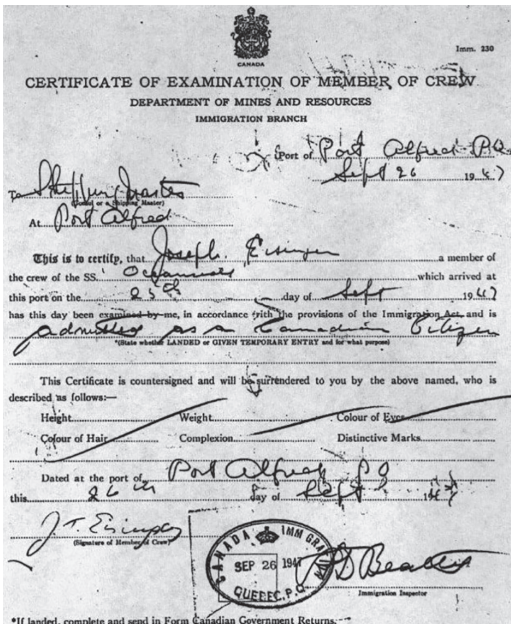 CANADA
Imm. 230
CERTIFICATE OF EXAMINATION OF MEMBER OF CREW
DEPARTMENT OF MINES AND RESOURCES
IMMIGRATION BRANCH
Port of Port Alfred P.Q.
Sept 26 1947
To Shipping Master
(Consul or a Shipping Master)
At Port Alfred
This is to certify, that Joseph Eisinger a member of
the crew of the SS. which arrived at
this port on the 25th day of Sept 1947
has this day been examined by me, in accordance with the provisions of the Immigration Act, and is
admitted as a Canadian Citizen
*(State whether LANDED or GIVEN TEMPORARY ENTRY and for what purpose)
This Certificate is countersigned and will be surrendered to you by the above named, who is
described as follows:—
Height Weight Colour of Eyes
Colour of Hair Complexion Distinctive Marks
Dated at the port of Port Alfred P.Q
this 26th day of Sept 1947
J. T. Eisinger
(Signature of Member of Crew)
CANADA IMMIGRATION
SEP 26 1947
QUEBEC, P.Q.
Beattie
Immigration Inspector
*If landed, complete and send in Form Canadian Government Returns.